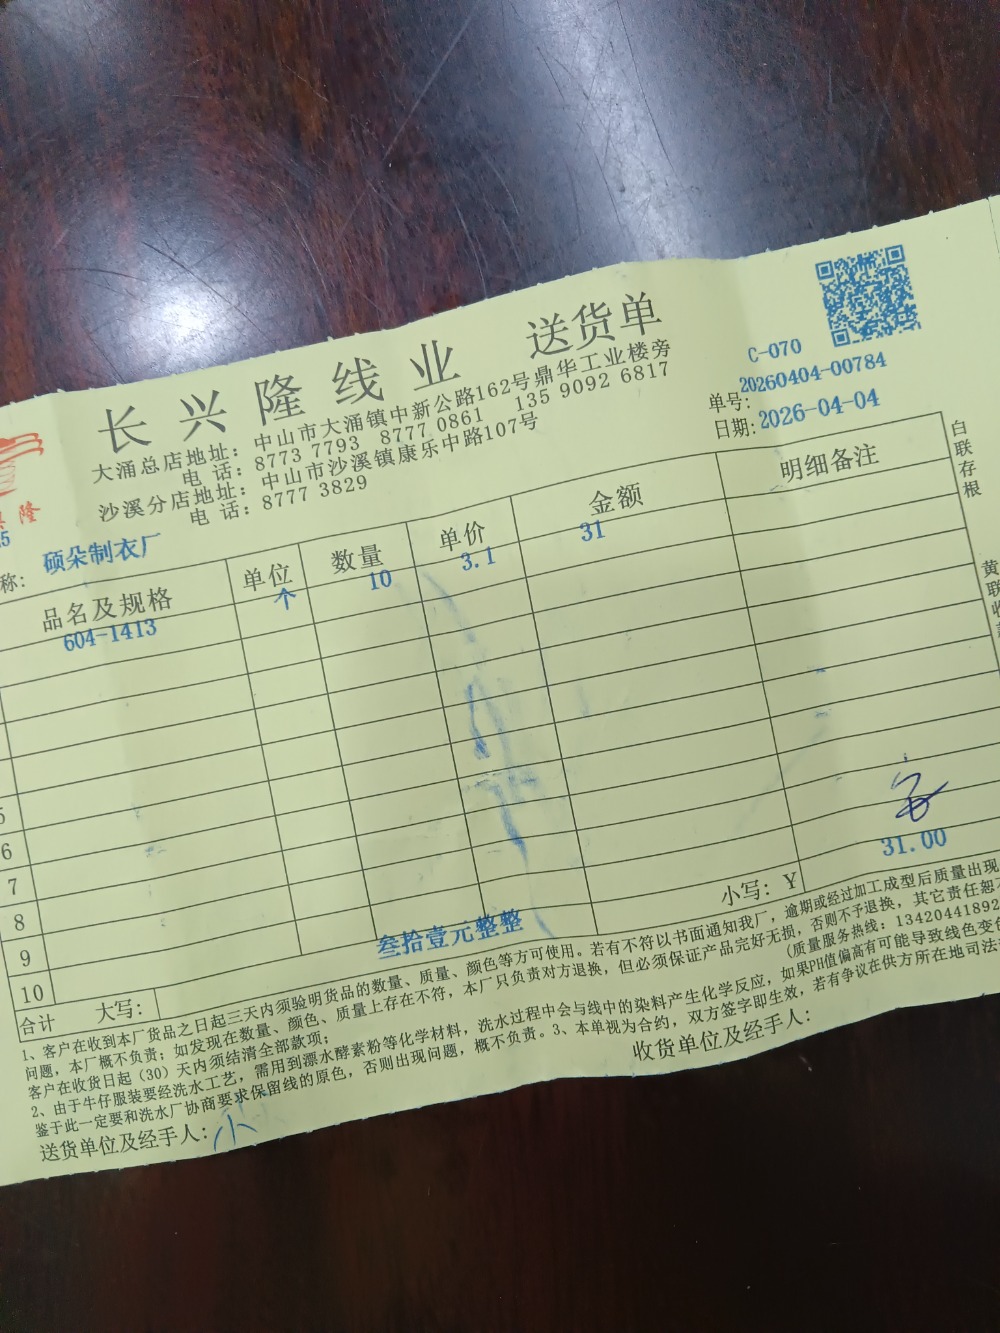 长兴隆线业 送货单
大涌总店地址：中山市大涌镇中新公路162号鼎华工业楼旁
电 话：8773 7793 8777 0861 135 9092 6817
沙溪分店地址：中山市沙溪镇康乐中路107号
电 话：8777 3829
C-070
单号：20260404-00784
日期：2026-04-04
隆
称：硕朵制衣厂
品名及规格 单位 数量 单价 金额 明细备注
604-1413 个 10 3.1 31
6
7
8
9
10
合计 大写：叁拾壹元整整 小写：Y 31.00
1、客户在收到本厂货品之日起三天内须验明货品的数量、质量、颜色等方可使用。若有不符以书面通知我厂，逾期或经过加工成型后质量出现
问题，本厂概不负责；如发现在数量、颜色、质量上存在不符，本厂只负责对方退换，但必须保证产品完好无损，否则不予退换，其它责任恕不
客户在收货日起（30）天内须结清全部款项； （质量服务热线：13420441892
2、由于牛仔服装要经洗水工艺，需用到漂水酵素粉等化学材料，洗水过程中会与线中的染料产生化学反应，如果PH值偏高有可能导致线色变
鉴于此一定要和洗水厂协商要求保留线的原色，否则出现问题，概不负责。3、本单视为合约，双方签字即生效，若有争议在供方所在地司法
送货单位及经手人：小 收货单位及经手人：
白联存根
黄联收